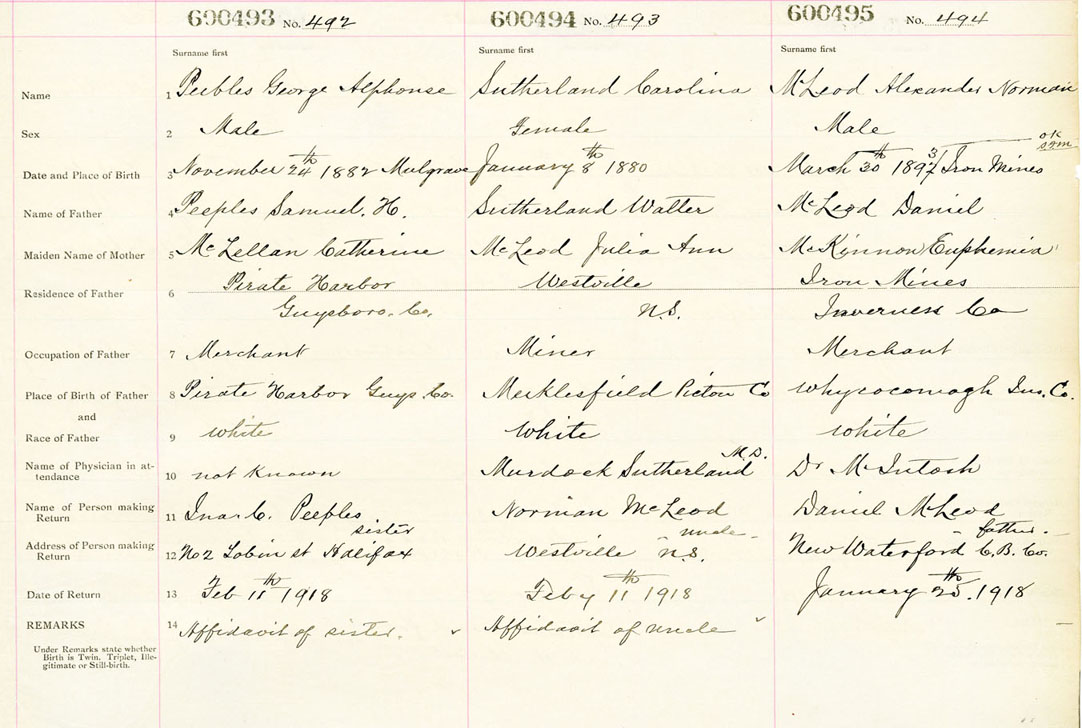 600493 No. 492 600494 No. 493 600495 No. 494
Surname first Surname first Surname first
Name 1 Peebles George Alphonse Sutherland Carolina McLeod Alexander Norman
Sex 2 Male Female Male
ok
Date and Place of Birth 3 November 24th 1882 Mulgrave January 8th 1880 March 30th 1893 Iron Mines
Name of Father 4 Peeples Samuel. H. Sutherland Walter McLeod Daniel
Maiden Name of Mother 5 McLellan Catherine McLeod Julia Ann McKinnon Euphemia
Residence of Father 6 Pirate Harbor Westville Iron Mines
Guysboro. Co. N.S. Inverness Co
Occupation of Father 7 Merchant Miner Merchant
Place of Birth of Father 8 Pirate Harbor Guys. Co. Mecklesfield Picton Co Whycocomagh Inv. Co.
and
Race of Father 9 White White White
Name of Physician in at-
tendance 10 not Known Murdock Sutherland M.D. Dr McIntosh
Name of Person making
Return 11 Ina. C. Peeples Norman McLeod Daniel McLeod
sister uncle father.
Address of Person making
Return 12 No 2 Tobin st Halifax Westville N.S. New Waterford C.B. Co.
Date of Return 13 Feb 11th 1918 Feby 11th 1918 January 25th. 1918
REMARKS 14 Affidavit of sister. Affidavit of uncle
Under Remarks state whether
Birth is Twin, Triplet, Ille-
gitimate or Still-birth.